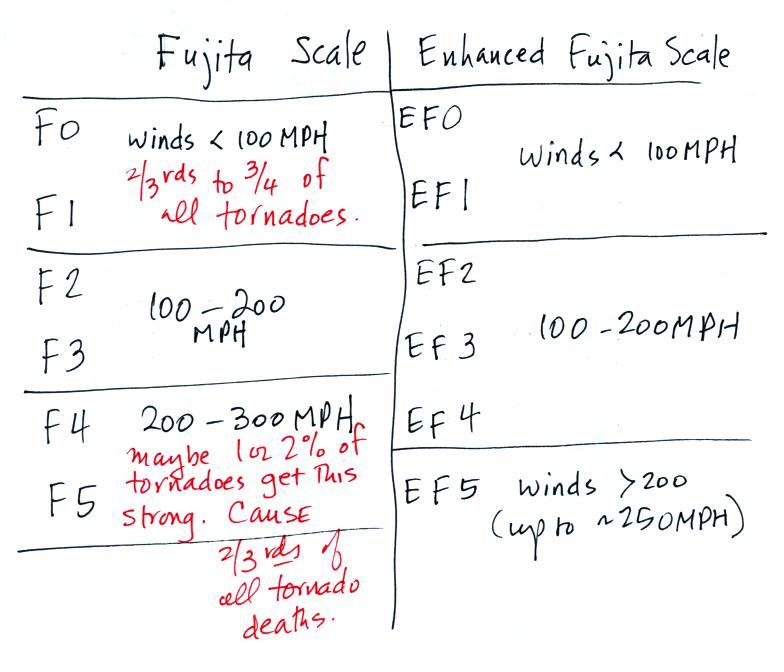 Fujita Scale
F0 winds < 100 MPH
2/3rds to 3/4 of
F1 all tornadoes.
F2
100 - 200
MPH
F3
F4 200 - 300 MPH
maybe 1 or 2% of
tornadoes get this
F5
strong. Cause
2/3 rds of
all tornado
deaths.
Enhanced Fujita Scale
EF0
winds < 100MPH
EF1
EF2
100 - 200MPH
EF3
EF4
EF5 winds > 200
(up to ~250MPH)